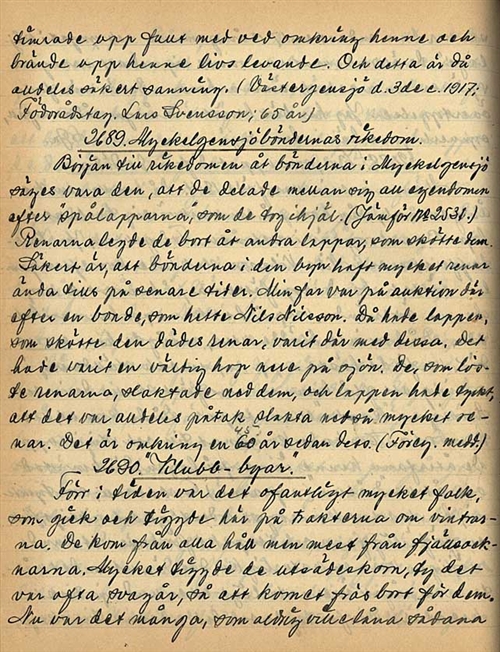 timrade upp fullt med ved omkring henne och
brände upp henne livs levande. Och detta är då
alldeles säkert sanning. (Västergensjö d. 3 dec. 1917;
Födorådstag. Lars Svensson; 65 år)
2689. Myckelgensjöböndernas rikedom.
Början till rikedomen åt bönderna i Myckelgensjö
säges vara den, att de delade mellan sig all egendomen
efter "spålapparna, som de tog ihjäl. (Jämför No 2531.)
Renarna legde de bort åt andra lappar, som skötte dem.
Säkert är, att bönderna i den byn haft mycket renar
ända tills på senare tider. Min far var på auktion där
efter en bonde, som hette Nils Nilsson. Då hade lappen,
som skötte den dödes renar, varit där med dessa. Det
hade varit en väldig hop nere på sjön. De, som lös-
te renarna, slaktade ned dem, och lappen hade tyckt,
att det var alldeles på tok slakta ned så mycket re-
nar. Det är omkring en 60 år sedan dess. (Föreg. medd.)
2690. "Klubb-byar".
Förr i tiden var det ofantligt mycket folk,
som gick och tiggde här på trakterna om vintrar-
na. De kom från alla håll men mest från fjällsock-
narna. Mycket tiggde de utsädeskorn, ty det
var ofta svagår, så att kornet frös bort för dem.
Nu var det många, som aldrig ville låna sådana